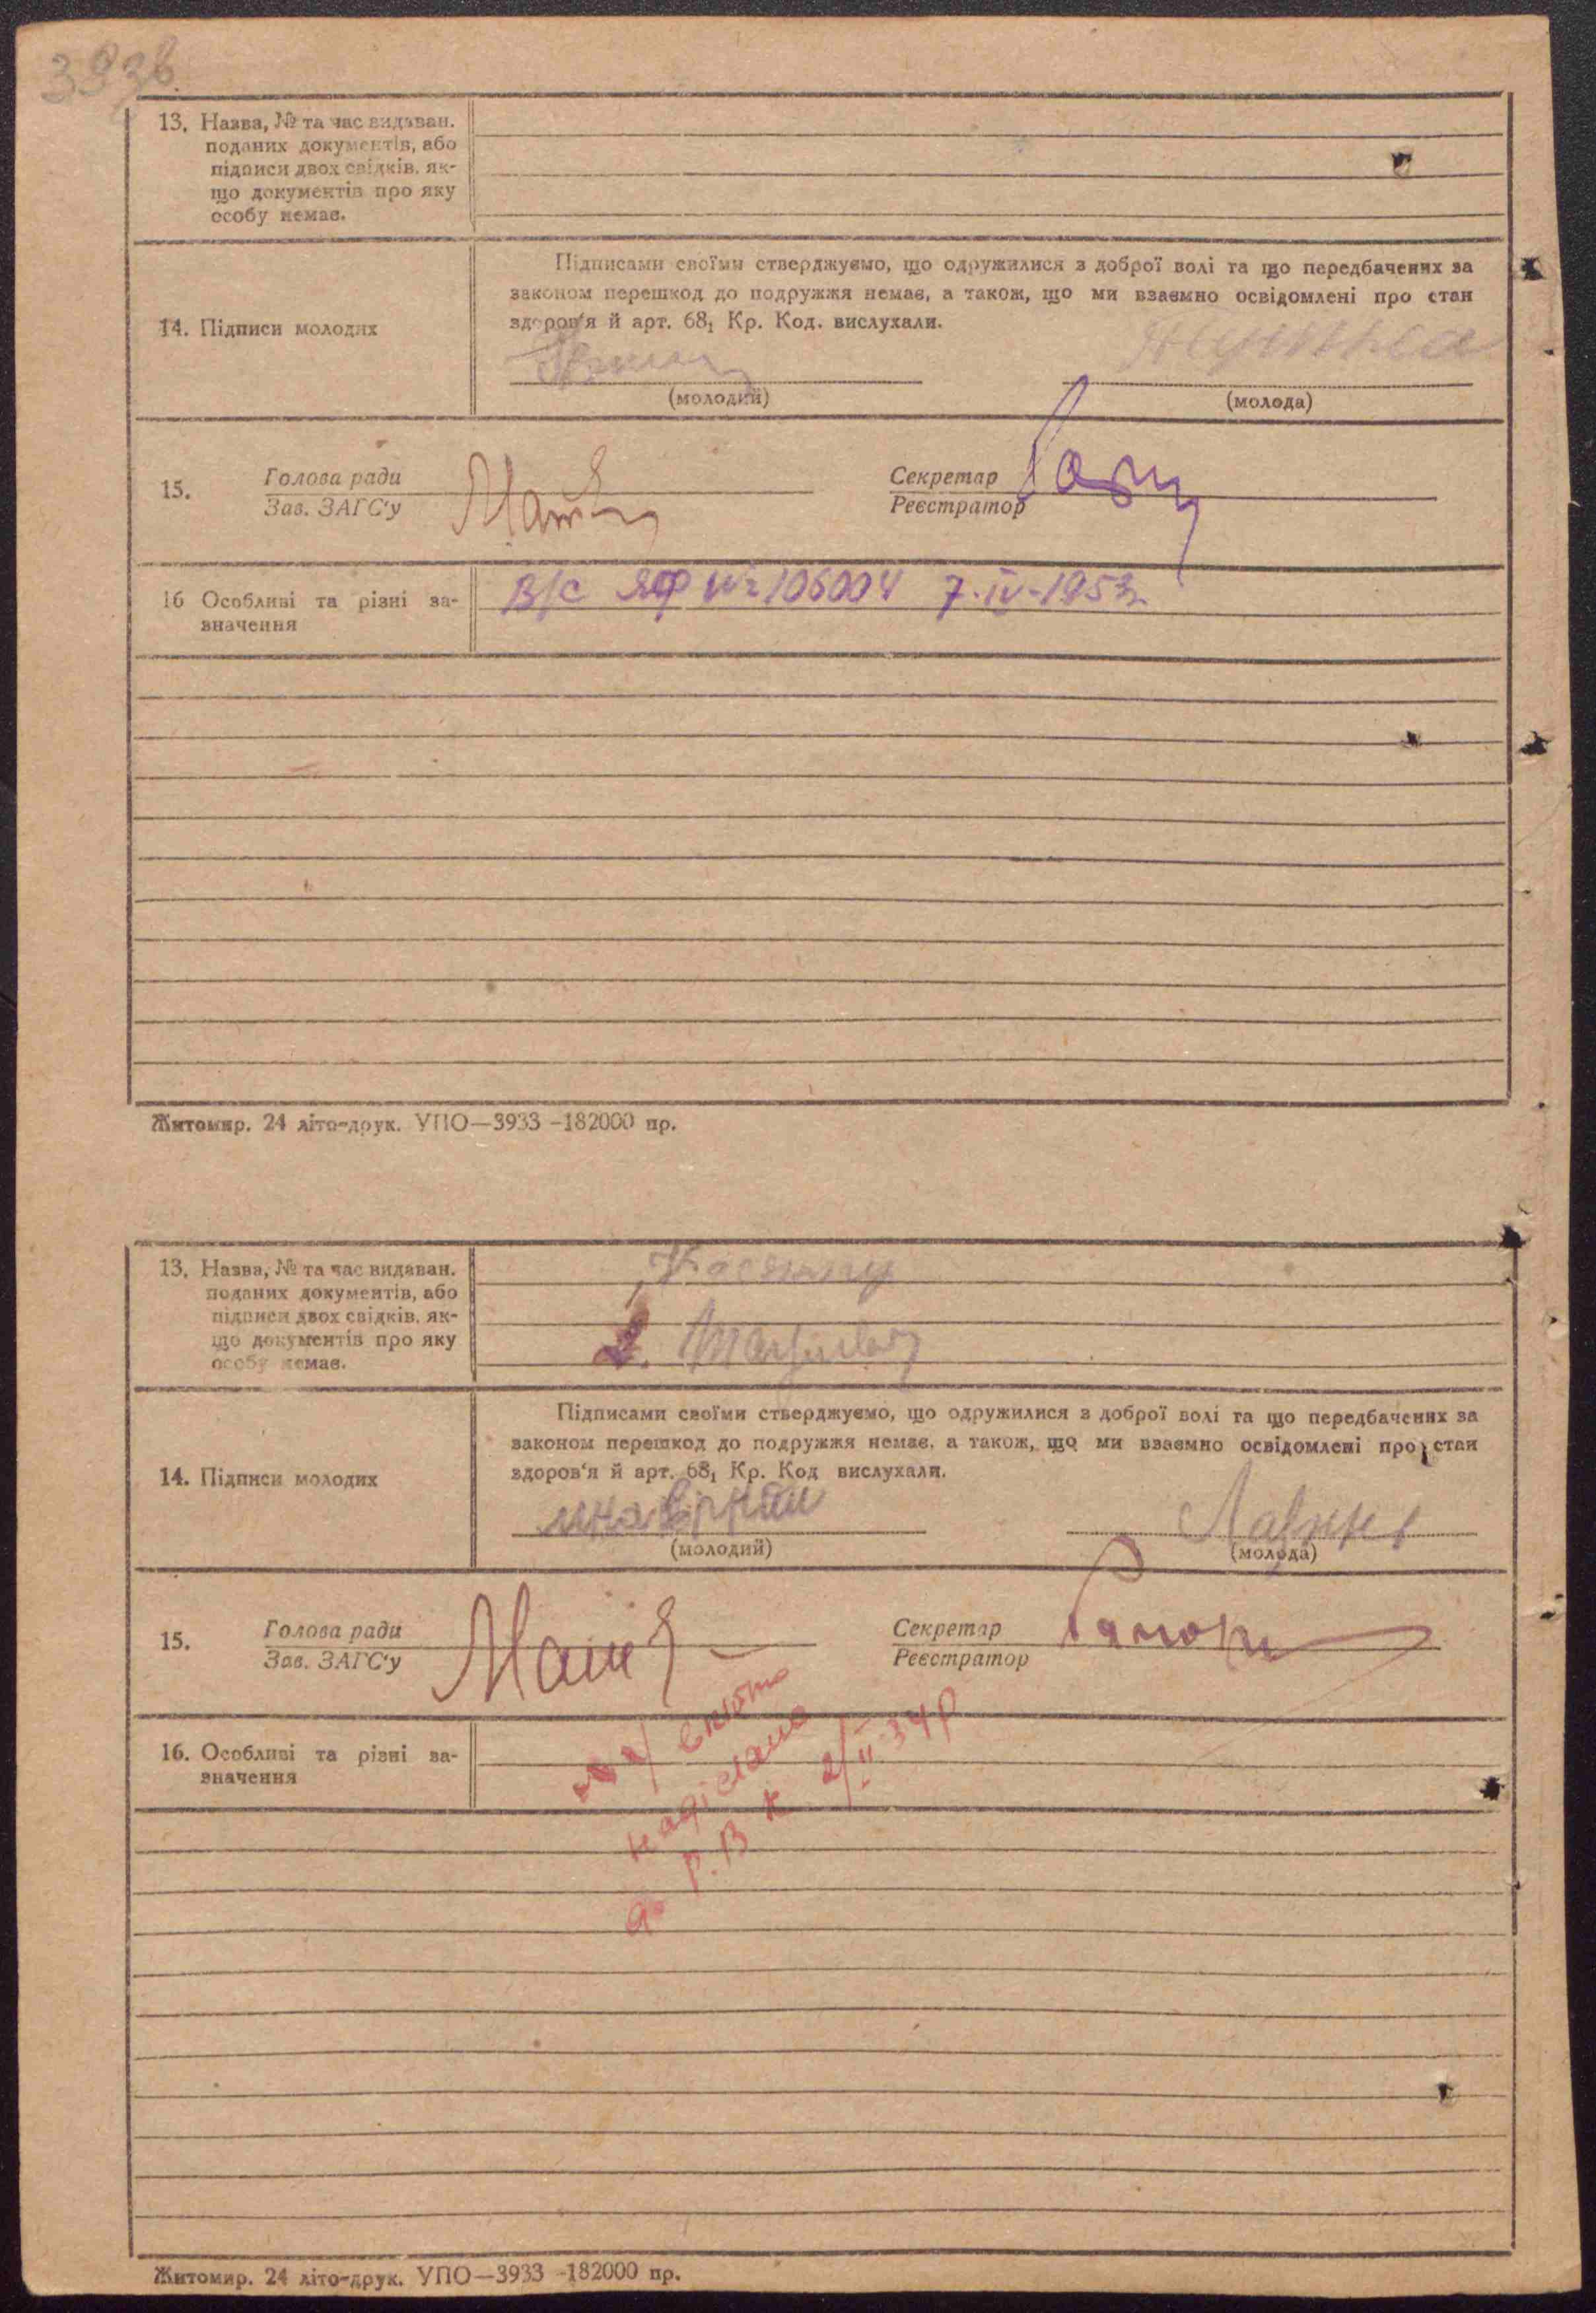 13. Назва, № та час видаван.
поданих документів, або
підписи двох свідків, як-
що документів про яку
особу немає.
Підписами своїми стверджуємо, що одружилися з доброї волі та що передбачених за
законом перешкод до подружжя немає, а також, що ми взаємно освідомлені про стан
здоров'я й арт. 68₁ Кр. Код. вислухали.
14. Підписи молодих
(молодий) (молода)
15. Голова ради Секретар
Зав. ЗАГС'у Реєстратор
16 Особливі та різні за-
значення
В/с ЯФ № 106004 7.IV-1953
Житомир. 24 літо-друк. УПО—3933 -182000 пр.
13. Назва, № та час видаван.
поданих документів, або
підписи двох свідків, як-
що документів про яку
особу немає.
2.
Підписами своїми стверджуємо, що одружилися з доброї волі та що передбачених за
законом перешкод до подружжя немає, а також, що ми взаємно освідомлені про стан
здоров'я й арт. 68₁ Кр. Код вислухали.
14. Підписи молодих
(молодий) (молода)
15. Голова ради Секретар
Зав. ЗАГС'у Реєстратор
16. Особливі та різні за-
значення
надіслано
до Р.В.К 2/II-34р
Житомир. 24 літо-друк. УПО—3933 -182000 пр.